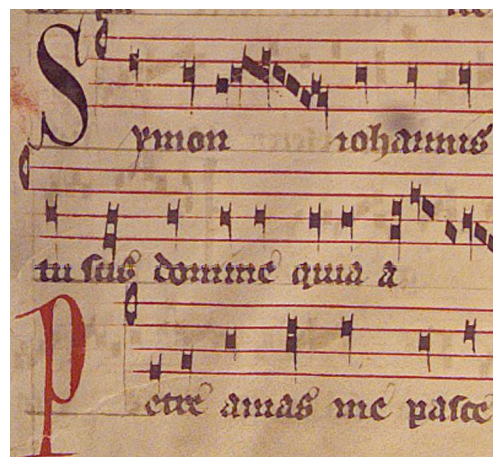 Symon iohannis
tu scis domine quia a
Petre amas me pasce